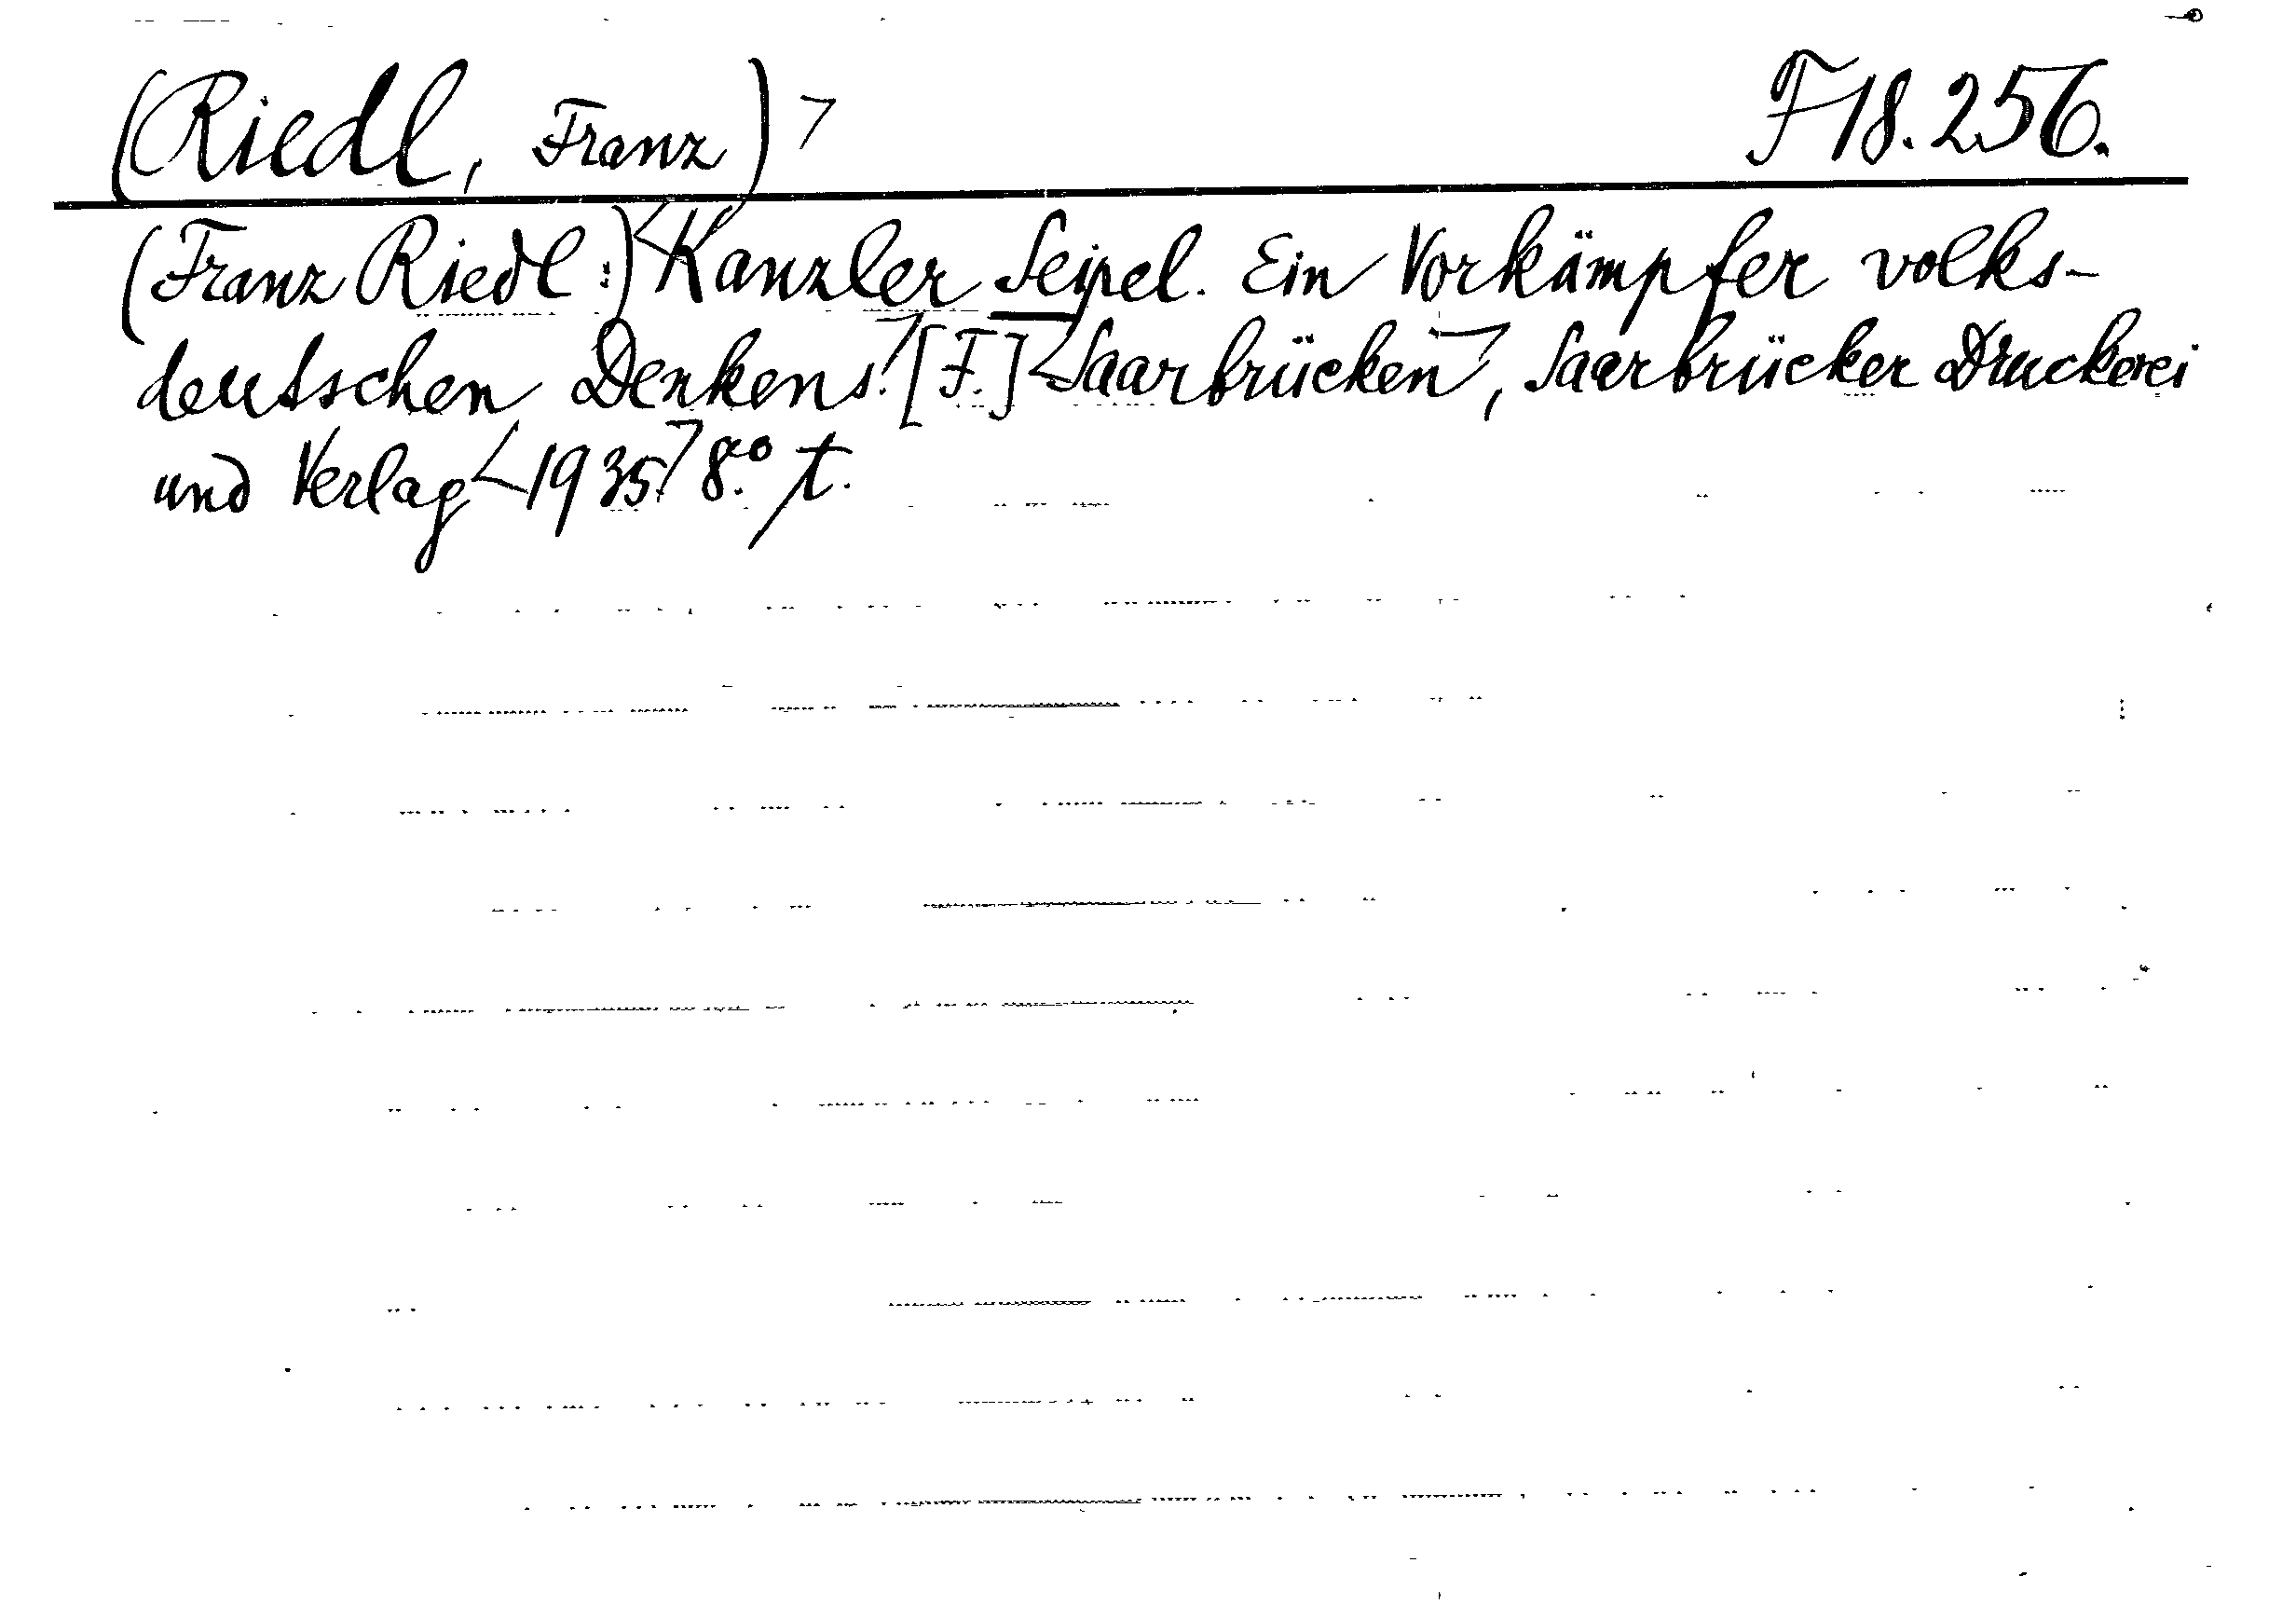 (Riedl, Franz) F 18.256.
(Franz Riedl:) Kanzler Seipel. Ein Vorkämpfer volks-
deutschen Denkens. [F.] Saarbrücken, Saarbrücker Druckerei
und Verlag 1935. 8.° t.